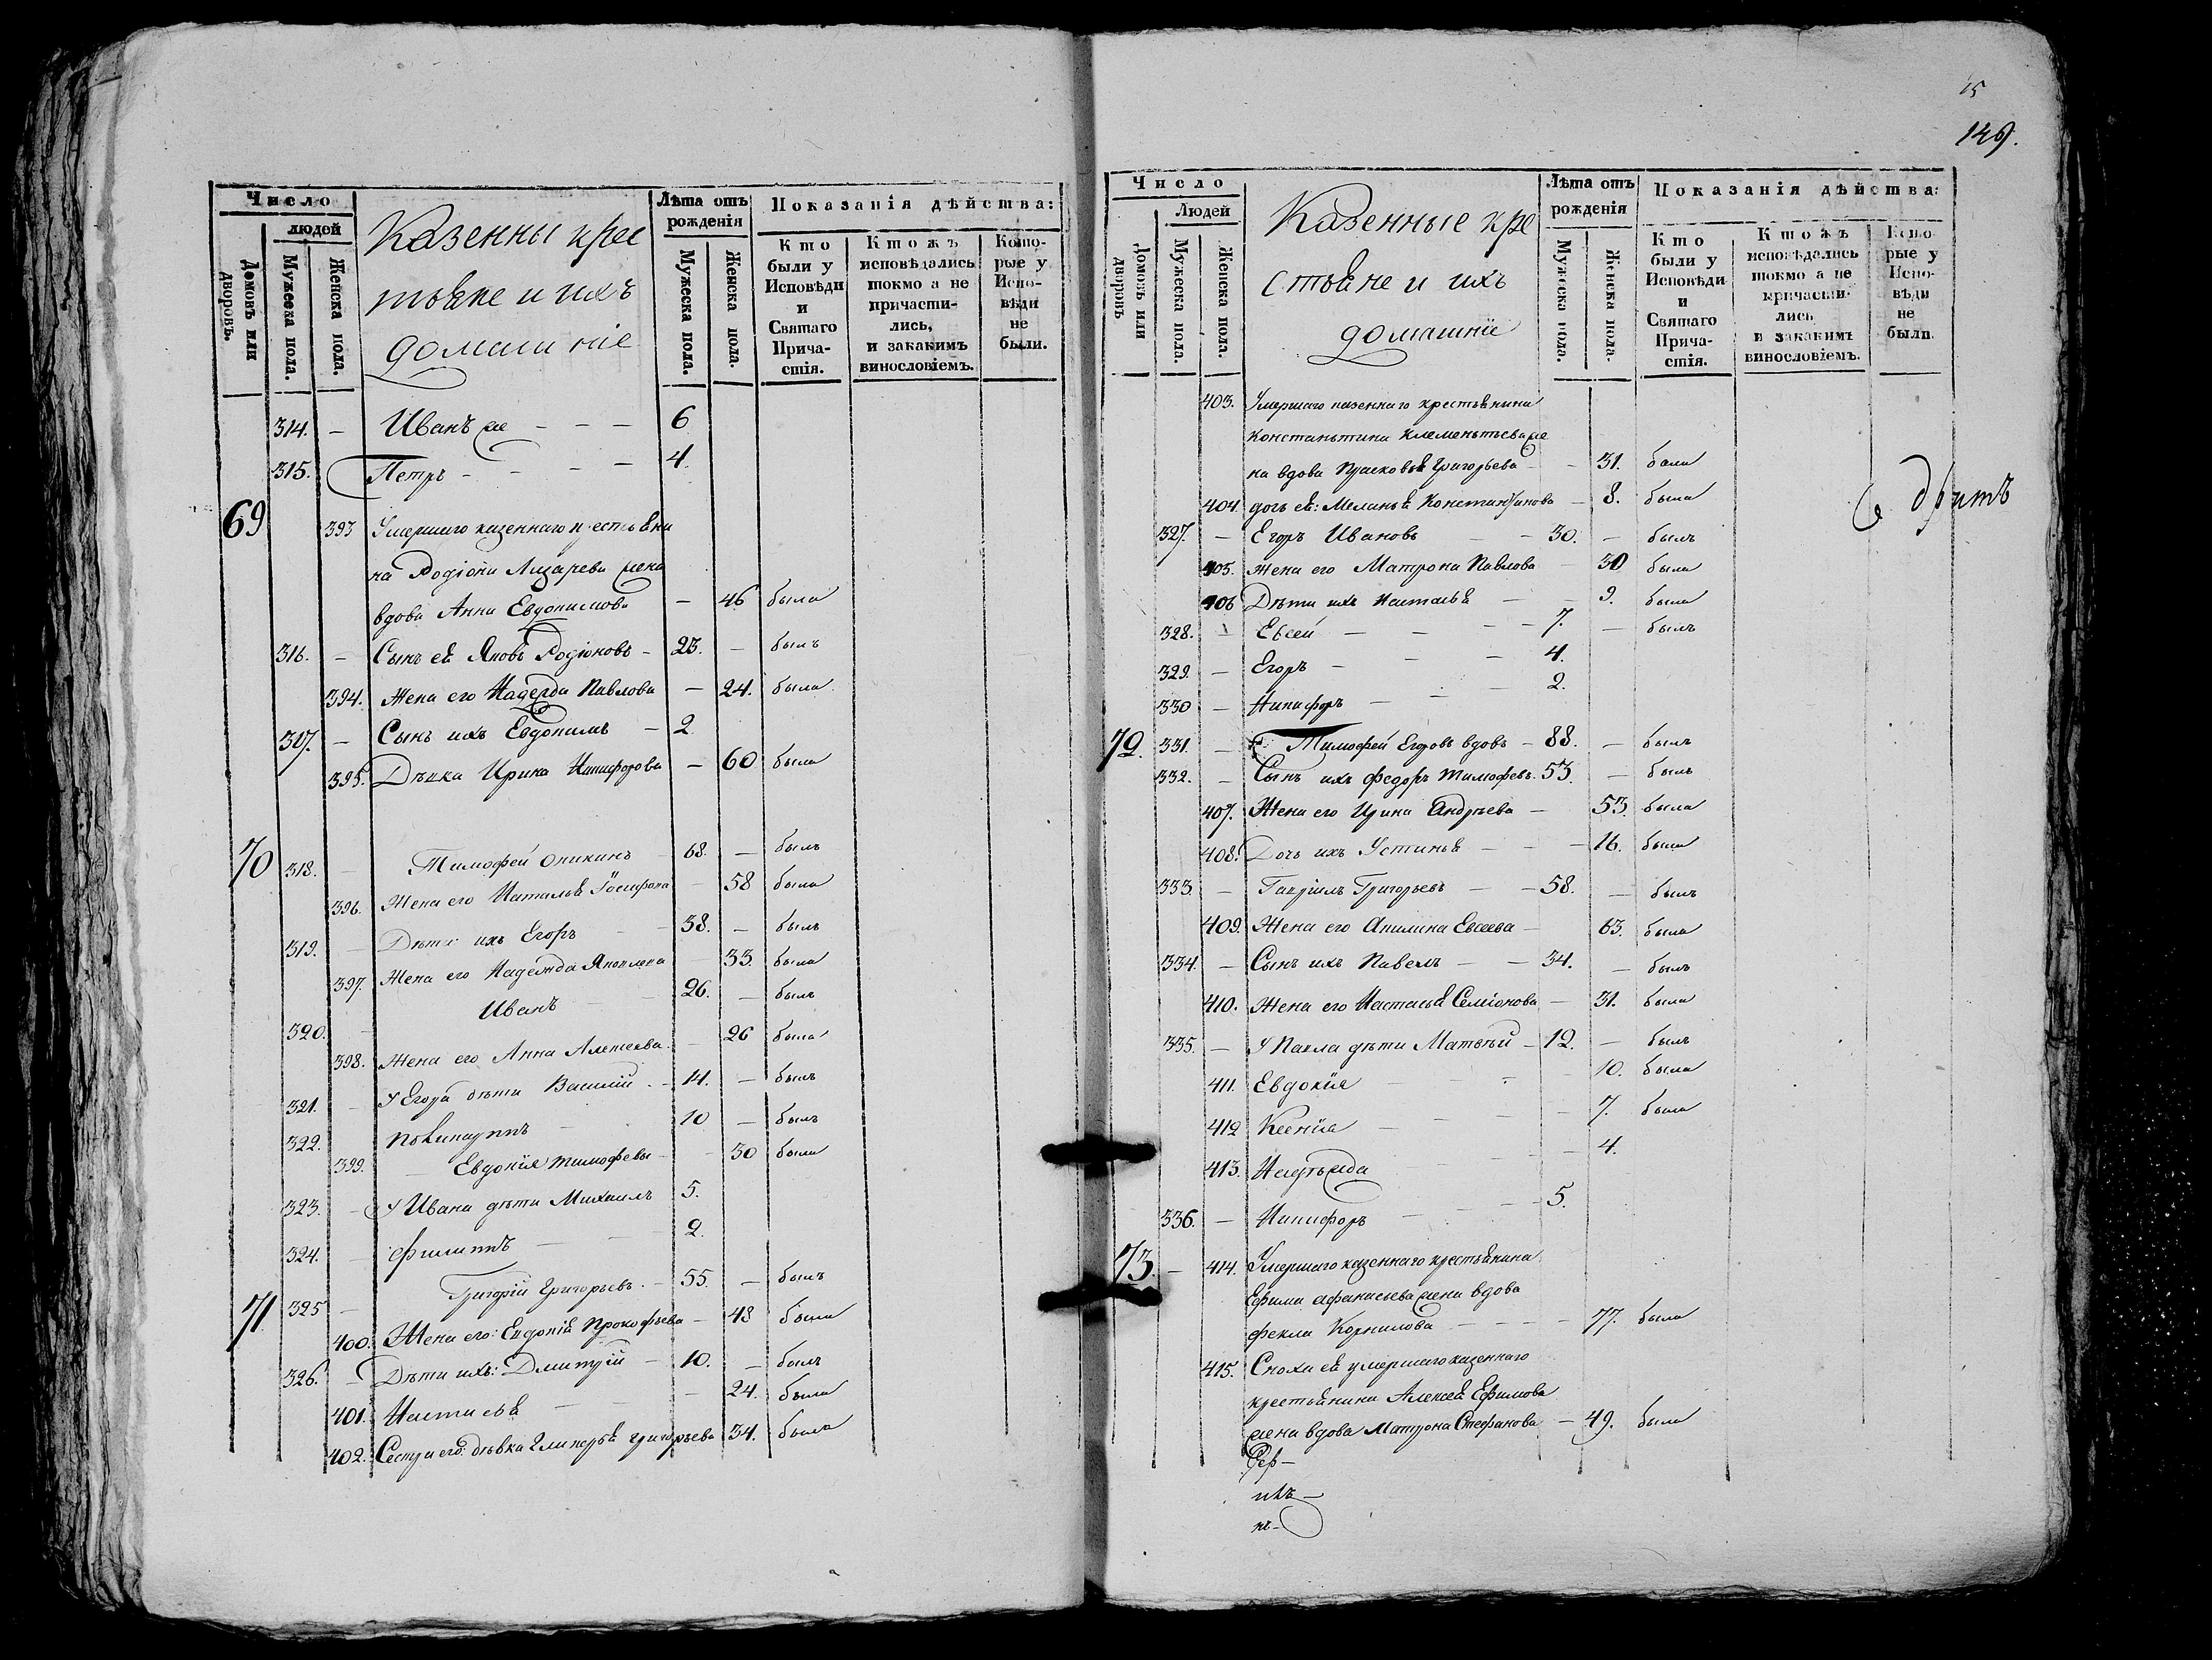 Число
людей
Домовъ или дворовъ.
Мужеска пола.
Женска пола.
Казенны крес
тьяне и ихъ
домашніе
Лѣта отъ рожденія
Мужеска пола.
Женска пола.
Показанія дѣйства:
Кто были у Исповѣди и Святаго Прича-стія.
Ктожъ исповѣдались токмо а не причасти-лись, и закакимъ винословіемъ.
Кото-рые у Испо-вѣди не были.
314. — Иванъ же — — — 6
315. Петръ — — — — 4.
69 393 Умершаго казеннаго крестьяни
на Родіона Лазарева жена
вдова Анна Евдокимова — 46 была
316. — Сынъ ея Яковъ Родіоновъ — 23. — былъ
394. Жена его Надежда Павлова — 24. была
317. — Сынъ ихъ Евдокимъ — 2
395. Дѣвка Ирина Никифорова — 60 была
70 318. — Тимофей Оникинъ — 68. — былъ
396. Жена его Наталья Іосифова — 58 была
319. — Дѣти ихъ Егоръ — 38. — былъ
397. Жена его Надежда Яковлева — 33. была
320. — Иванъ — 26. — былъ
398. Жена его Анна Алексеева. — 26 была
321. — У Егора дѣти Василій — 14. — былъ
322. — 10 — былъ
399. Евдокія Тимофева — 30 была
323. — У Ивана дѣти Михаилъ 5.
324. — Филиппъ — — 2.
71. 325 — Григорій Григорьевъ. — 55. — былъ
400. Жена его: Евдокія Прокофьева — 48 была
326. — Дѣти ихъ: Дмитрій — 10. — былъ
401. Настасья — — 24. была
402. Сестра его: дѣвка Гликерья Григорьева 34. была
15
149.
Число
Людей
Домовъ или дворовъ
Мужеска пола.
Женска пола.
Казенные кре
стьяне и ихъ
домашніе
Лѣта отъ рожденія
Мужеска пола.
Женска пола.
Показанія дѣйства:
Кто были у Исповѣди и Святаго Прича-стія.
Ктожъ исповѣдались токмо а не причасти-лись, и закакимъ винословіемъ.
Кото-рые у Испо-вѣди не были.
403. Умершаго казеннаго крестьянина
Константина Клементьева же
на вдова Прасковья Григорьева — — 31. была
404. дочь ея: Меланья Константинова — 8. была
327. — Егоръ Ивановъ — — 30. — былъ
405. Жена его Матрона Павлова — 30 была
406 Дѣти ихъ Настасья — — 9. была
328. — Евсей — — — — 7. — былъ
329. — Егоръ — — — 4.
330 — Никифоръ — — — 2.
72. 331. — Тимофей Егоровъ вдовъ — 88. — былъ
332. — Сынъ ихъ Федоръ Тимофевъ. 53. — былъ
407. Жена его Ирина Андрѣева — 53. была
408. Дочь ихъ Устинья — — — 16. была
333. — Гаврілъ Григорьевъ — — 58. — былъ
409. Жена его Акилина Евсеева — 63. была
334. — Сынъ ихъ Павелъ — — 34. — былъ
410. Жена его Настасья Семіонова — 31. была
335. — У Павла дѣти Матвѣй — 12. — былъ
411. Евдокія — — — 10. была
412 Ксенія — — — — 7. была
413. — — — 4.
336. — Никифоръ — — — 5.
73. — 414. Умершаго казеннаго крестьянина
Ефима Афанасьева жена вдова
Фекла Корнилова — — — — 77. была
415. Сноха ея умершаго казеннаго
крестьянина Алексея Ефимова
жена вдова Матрона Стефанова — 49. была